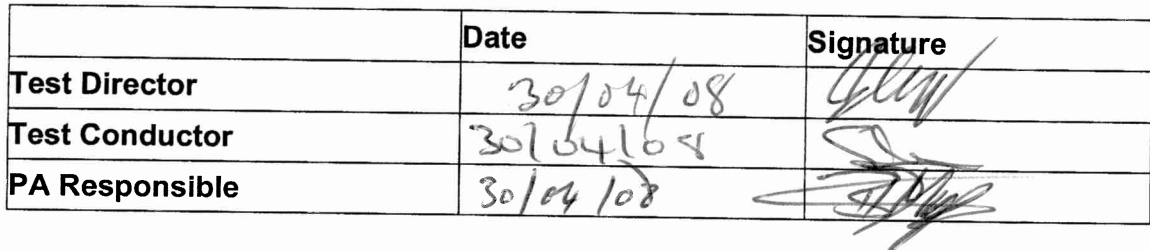 Date Signature
Test Director 30/04/08
Test Conductor 30/04/08
PA Responsible 30/04/08